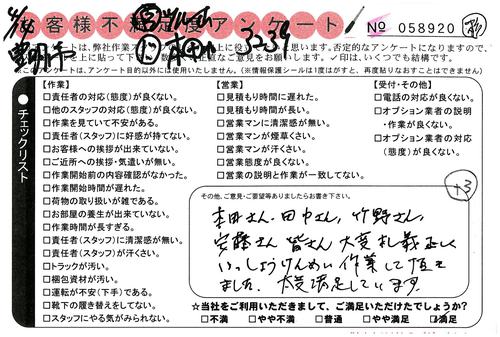 お客様不満足度アンケート
No 058920
豊明市
本田
32-39
アンケートは、弊社作業スタッフ
に役立
います。否定的なアンケートになりますので、
を上に貼って下
直なご意見をお願いします。✓印は、いくつでも結構です。
このアンケートは、アンケート目的以外には使用いたしません。(※情報保護シールは1度はがすと、再度貼りなおすことはできません)
●チェックリスト
【作業】
□責任者の対応(態度)が良くない。
□他のスタッフの対応(態度)が良くない。
□作業を見ていて不安がある。
□責任者(スタッフ)に好感が持てない。
□お客様への挨拶が出来ていない。
□ご近所への挨拶・気遣いが無い。
□作業開始前の内容確認がなかった。
□作業開始時間が遅れた。
□荷物の取り扱いが雑である。
□お部屋の養生が出来ていない。
□作業時間が長すぎる。
□責任者(スタッフ)に清潔感が無い。
□責任者(スタッフ)が汗くさい。
□トラックが汚い。
□梱包資材が汚い。
□運転が不安(下手)である。
□靴下の履き替えをしてない。
□スタッフにやる気がみられない。
【営業】
□見積もり時間に遅れた。
□見積もり時間が長い。
□営業マンに清潔感が無い。
□営業マンが煙草くさい。
□営業マンが汗くさい。
□営業態度が良くない。
□営業の説明と作業が一致してない。
【受付・その他】
□電話の対応が良くない。
□オプション業者の説明
・作業が良くない。
□オプション業者の対応
(態度)が良くない。
+3
その他、ご意見・ご要望等ありましたらお書き下さい。
本田さん、田中さん、竹野さん、
安藤さん 皆さん 大変 礼義正しく
いっしょうけんめい 作業して頂き
ました。大変満足しています。
☆当社をご利用いただきまして、ご満足いただけたでしょうか?
□不満 □やや不満 □普通 □やや満足 ☑満足